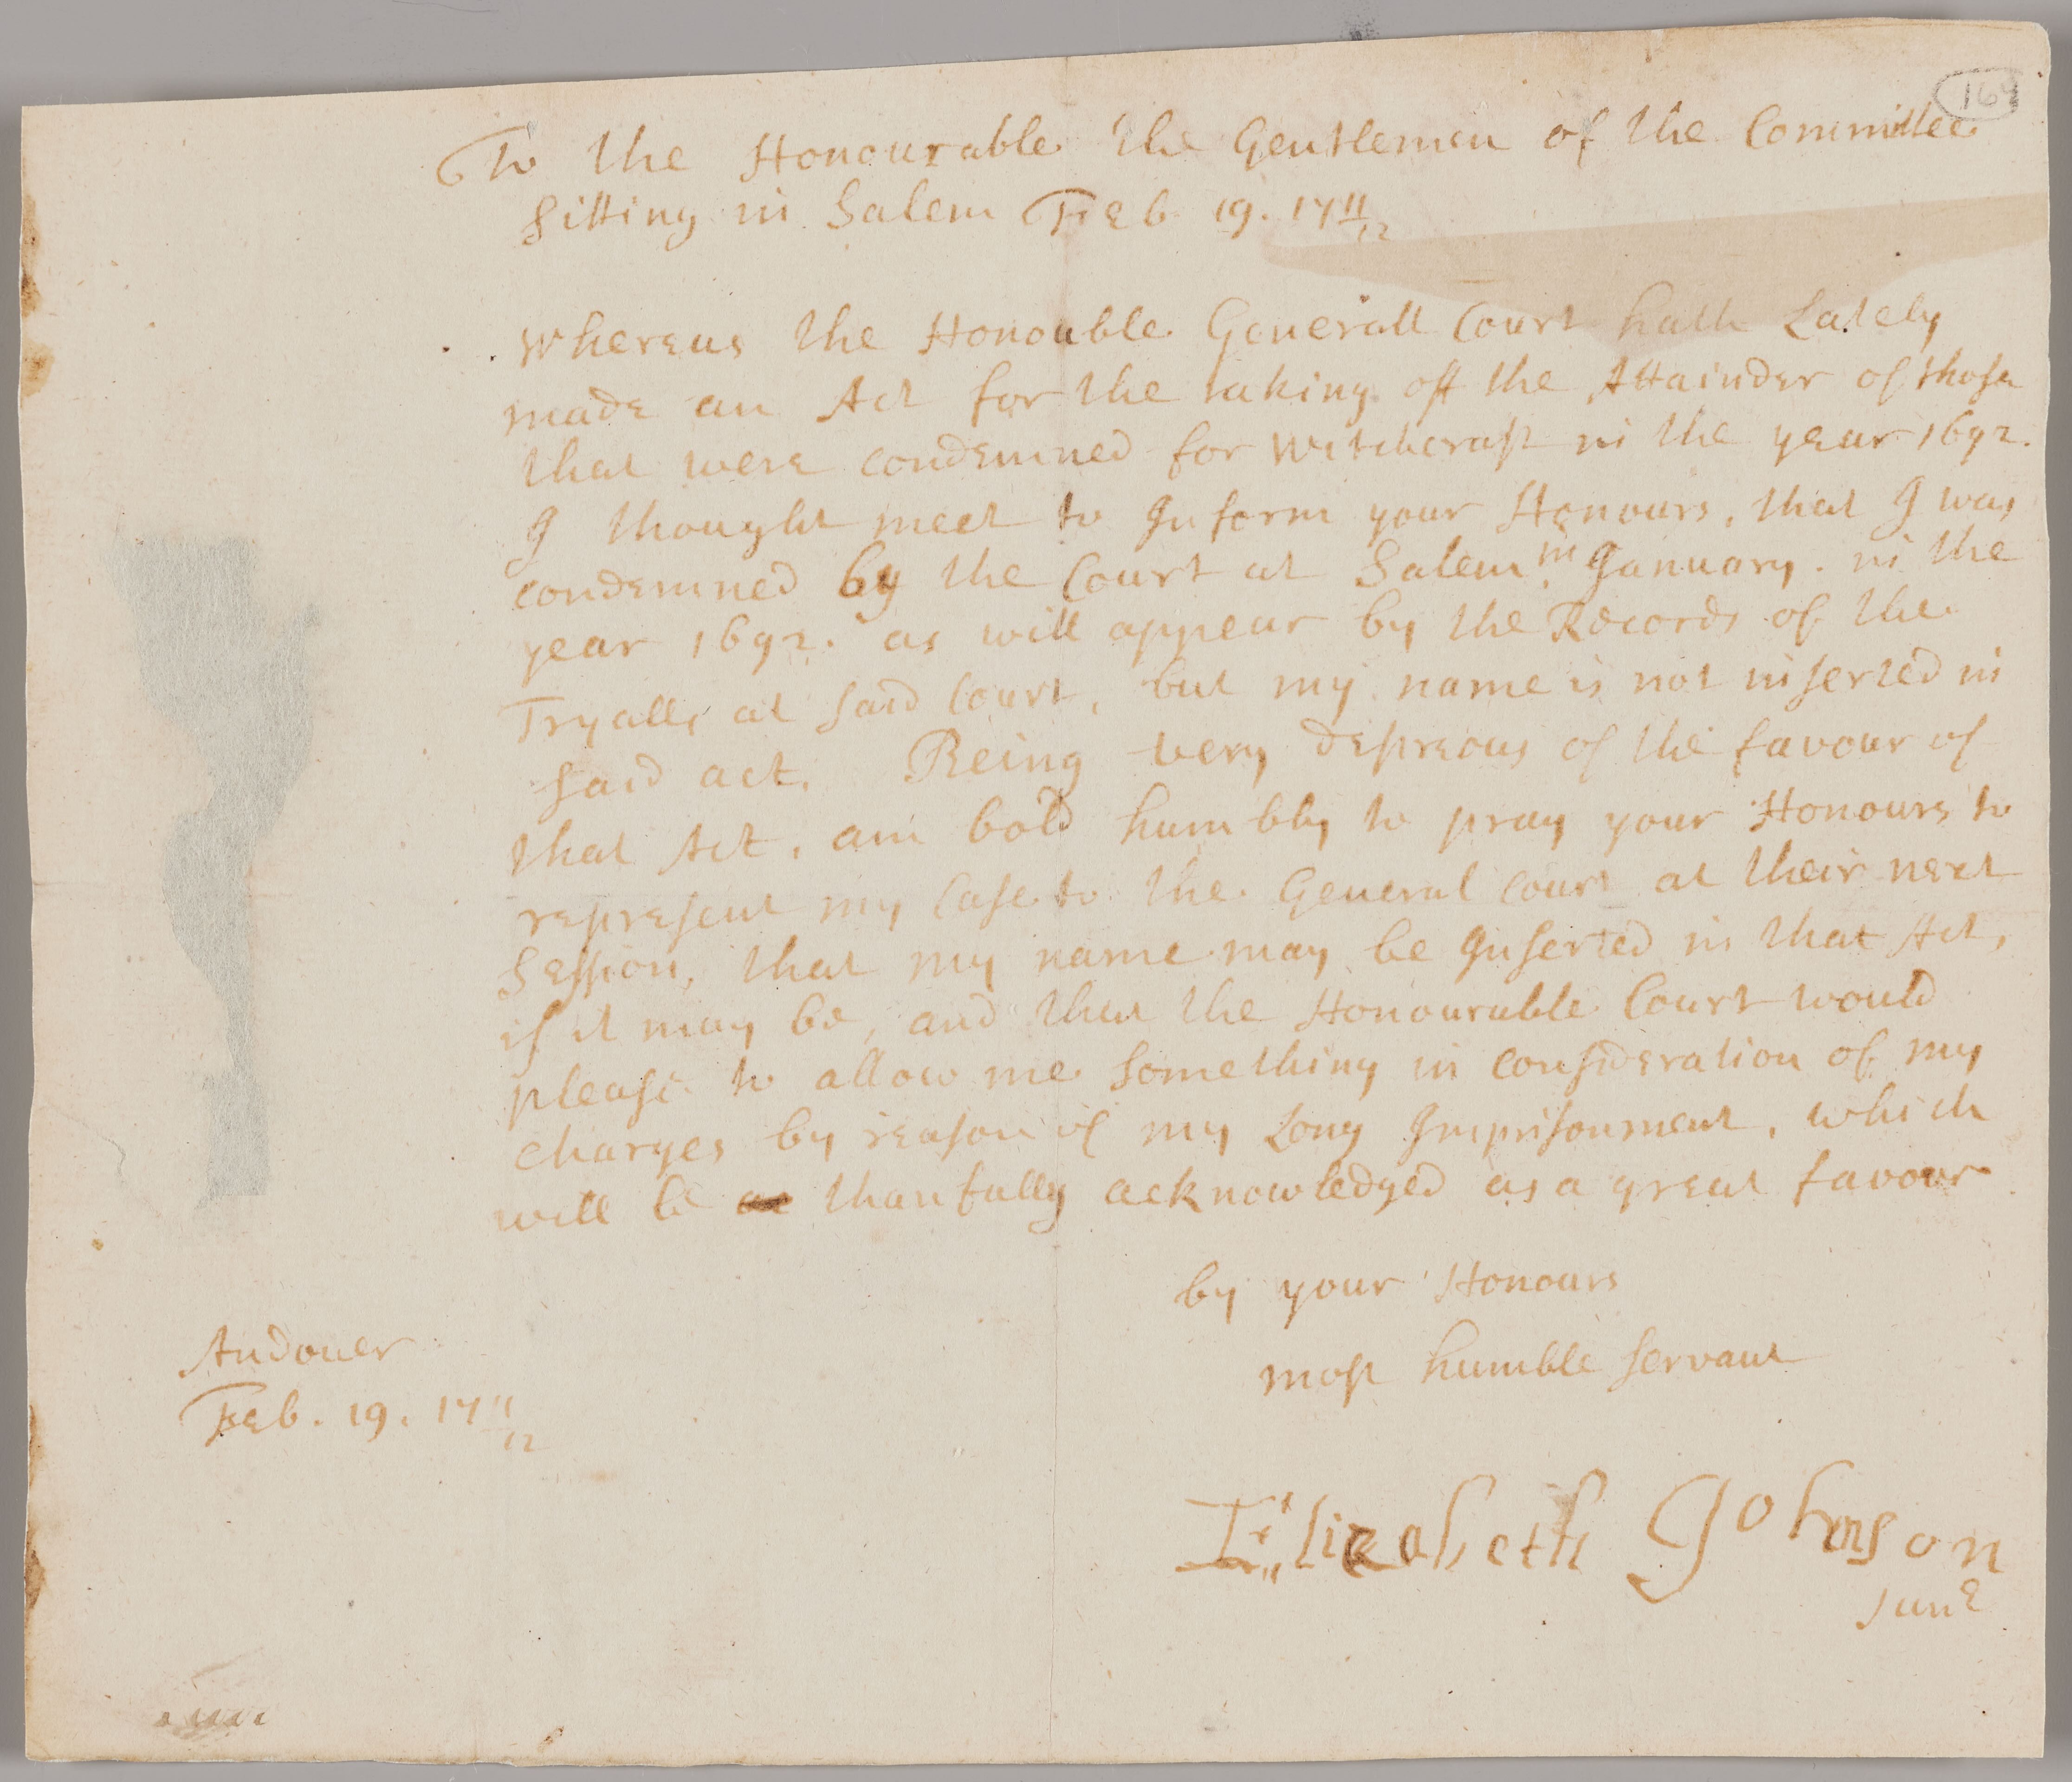 164
To the Honourable the Gentlemen of the Committee
sitting in Salem Feb. 19. 17 11/12
Whereas the Honouble Generall Court hath Lately
made an Act for the taking off the Attainder of those
that were condemned for Witchcraft in the year 1692.
I thought meet to Inform your Honours, that I was
condemned by the Court at Salem in January. in the
year 1692. as will appear by the Records of the
Tryalls at said Court, but my name is not inserted in
said act. Being very desireous of the favour of
that Act, am bold humbly to pray your Honours to
represent my Case to the General Court at their next
Session, that my name may be Inserted in that Act,
if it may be, and that the Honourable Court would
please to allow me something in consideration of my
charges by reason of my Long Imprisonment, which
will be thanfully acknowledged as a great favour
by your Honours
most humble servant
Andover
Feb. 19. 17 11/12
Elizabeth Johnson
Junr